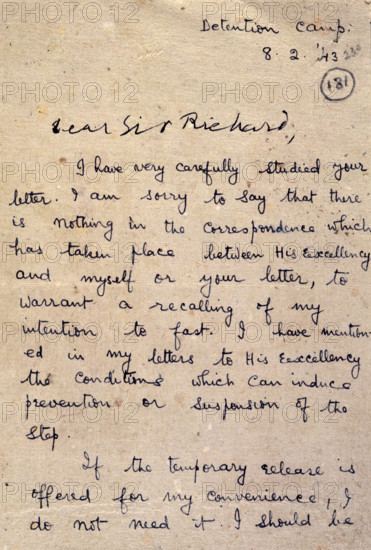 Detention Camp.
8. 2. '43
181
Dear Sir Richard,
I have very carefully studied your
letter. I am sorry to say that there
is nothing in the correspondence which
has taken place between His Excellency
and myself or your letter, to
warrant a recalling of my
intention to fast. I have mention-
ed in my letters to His Excellency
the conditions which can induce
prevention or suspension of the
step.
If the temporary release is
offered for my convenience, I
do not need it. I should be
PHOTO 12